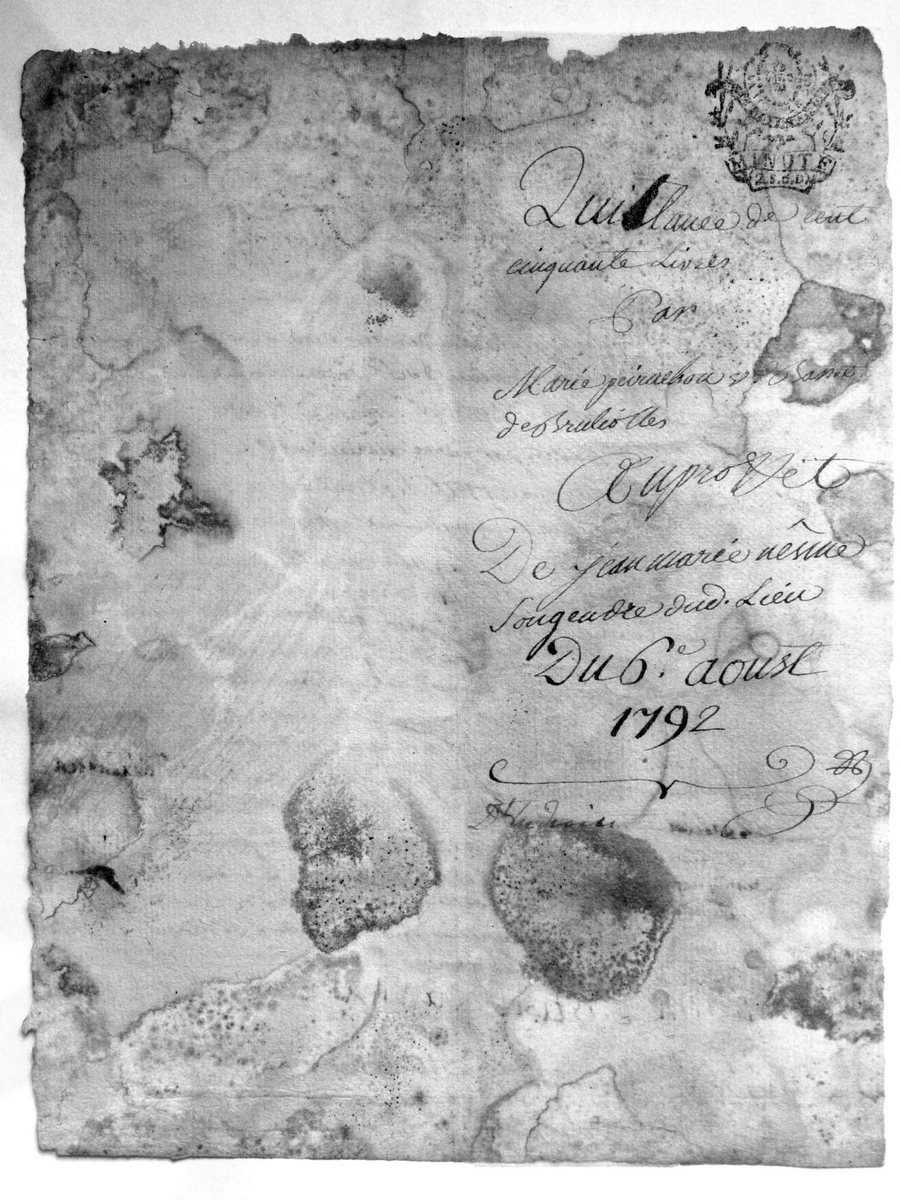 MINUTE
2.S.6.DM
Quittance de cent
cinquante Livres
Par
Marie peirachon
de Bruliolles
Au proffêt
De jean marie nêsme
Son gendre dud. Lieu
Du 6.e aoust
1792